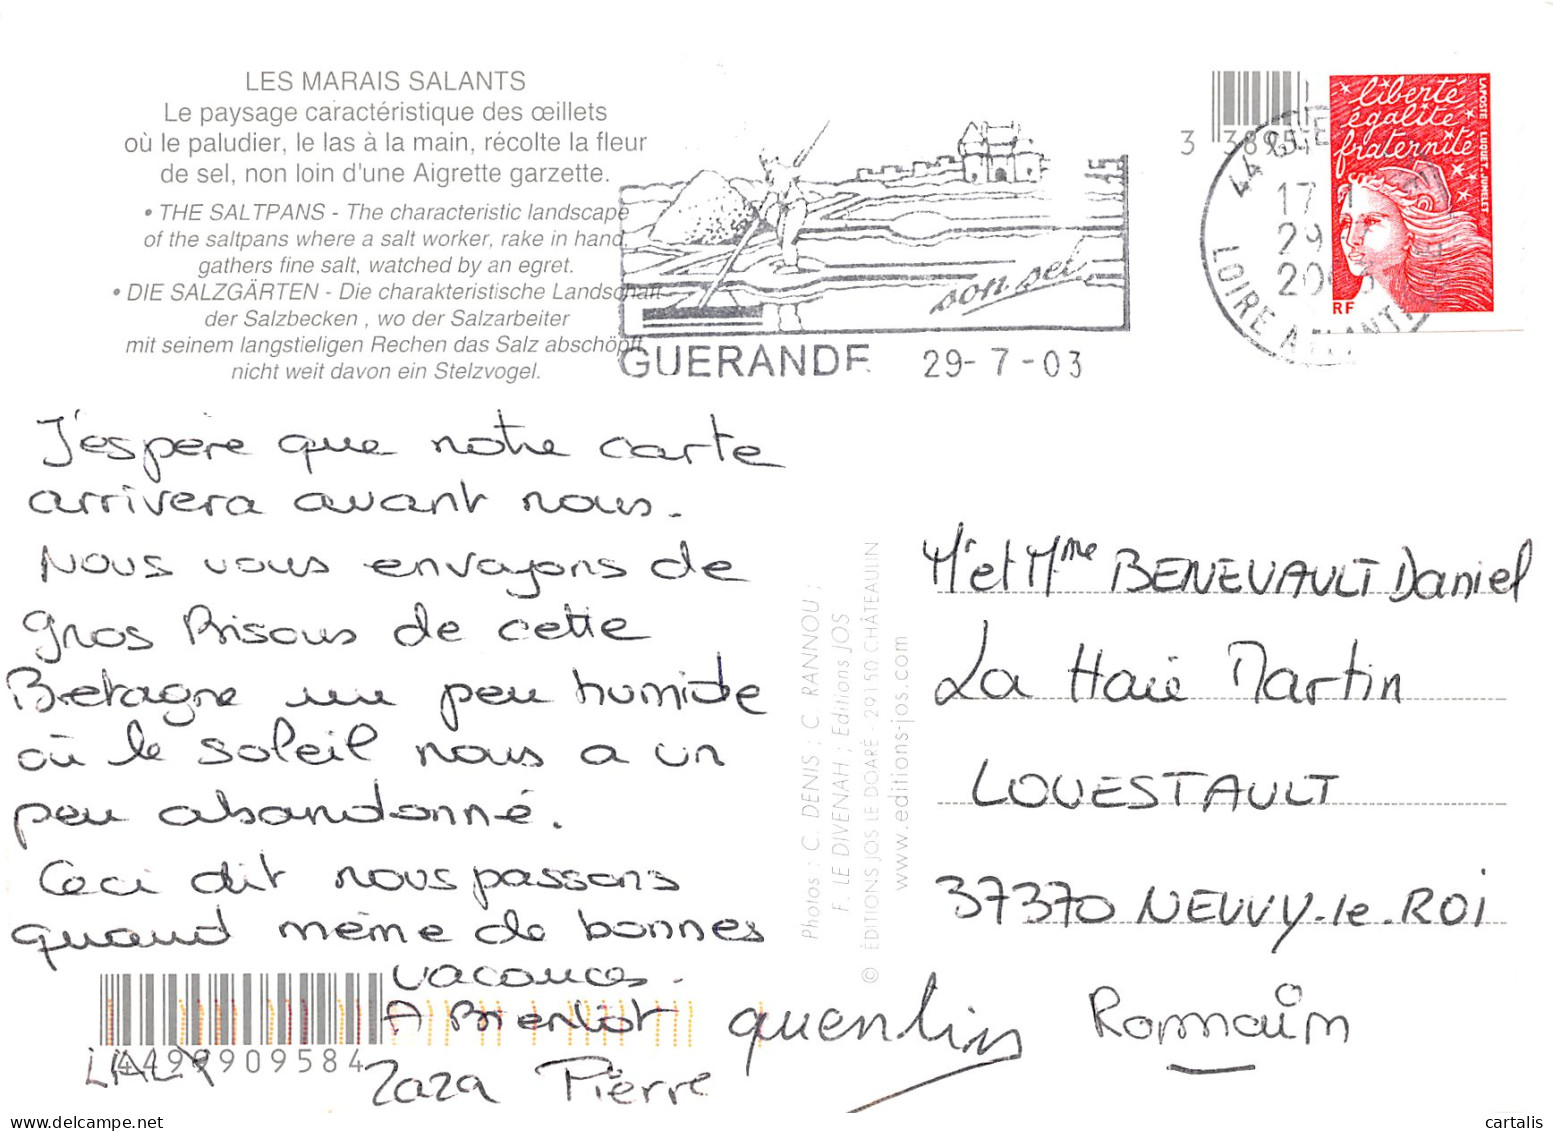 LES MARAIS SALANTS
Le paysage caractéristique des œillets
où le paludier, le las à la main, récolte la fleur
de sel, non loin d'une Aigrette garzette.
• THE SALTPANS - The characteristic landscape
of the saltpans where a salt worker, rake in hand,
gathers fine salt, watched by an egret.
• DIE SALZGÄRTEN - Die charakteristische Landschaft
der Salzbecken , wo der Salzarbeiter
mit seinem langstieligen Rechen das Salz abschöpft
nicht weit davon ein Stelzvogel.
son sel
GUERANDE 29-7-03
3 38957
44
17
29
20
LOIRE ATLANT
liberté
égalité
fraternité
LAPOSTE LUQUET-JUMELET
RF
J'espère que notre carte
arrivera avant nous.
Nous vous envoyons de
gros Bisous de cette
Bretagne un peu humide
où le soleil nous a un
peu abandonné.
Ceci dit nous passons
quand même de bonnes
vacances.
A Bientôt
Zaza Pierre
quentin
Romain
LILY
4499909584
Photos : C. DENIS ; C. RANNOU ;
F. LE DIVENAH ; Editions JOS
© ÉDITIONS JOS LE DOARÉ - 29150 CHÂTEAULIN
www.editions-jos.com
Mr et Mme BENEVAULT Daniel
La Haie Martin
LOUESTAULT
37370 NEUVY-le-ROI
cartalis